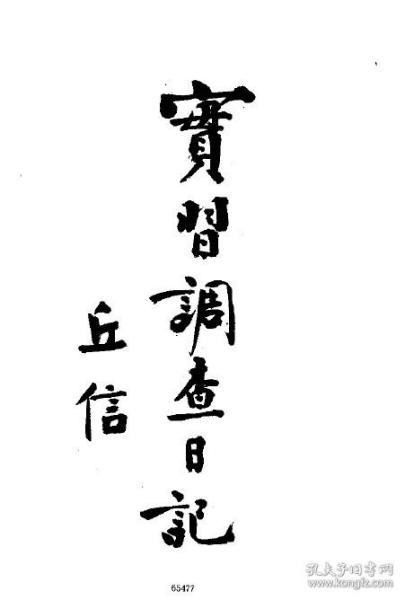 實習調查日記
丘信
65477
孔夫子旧书网